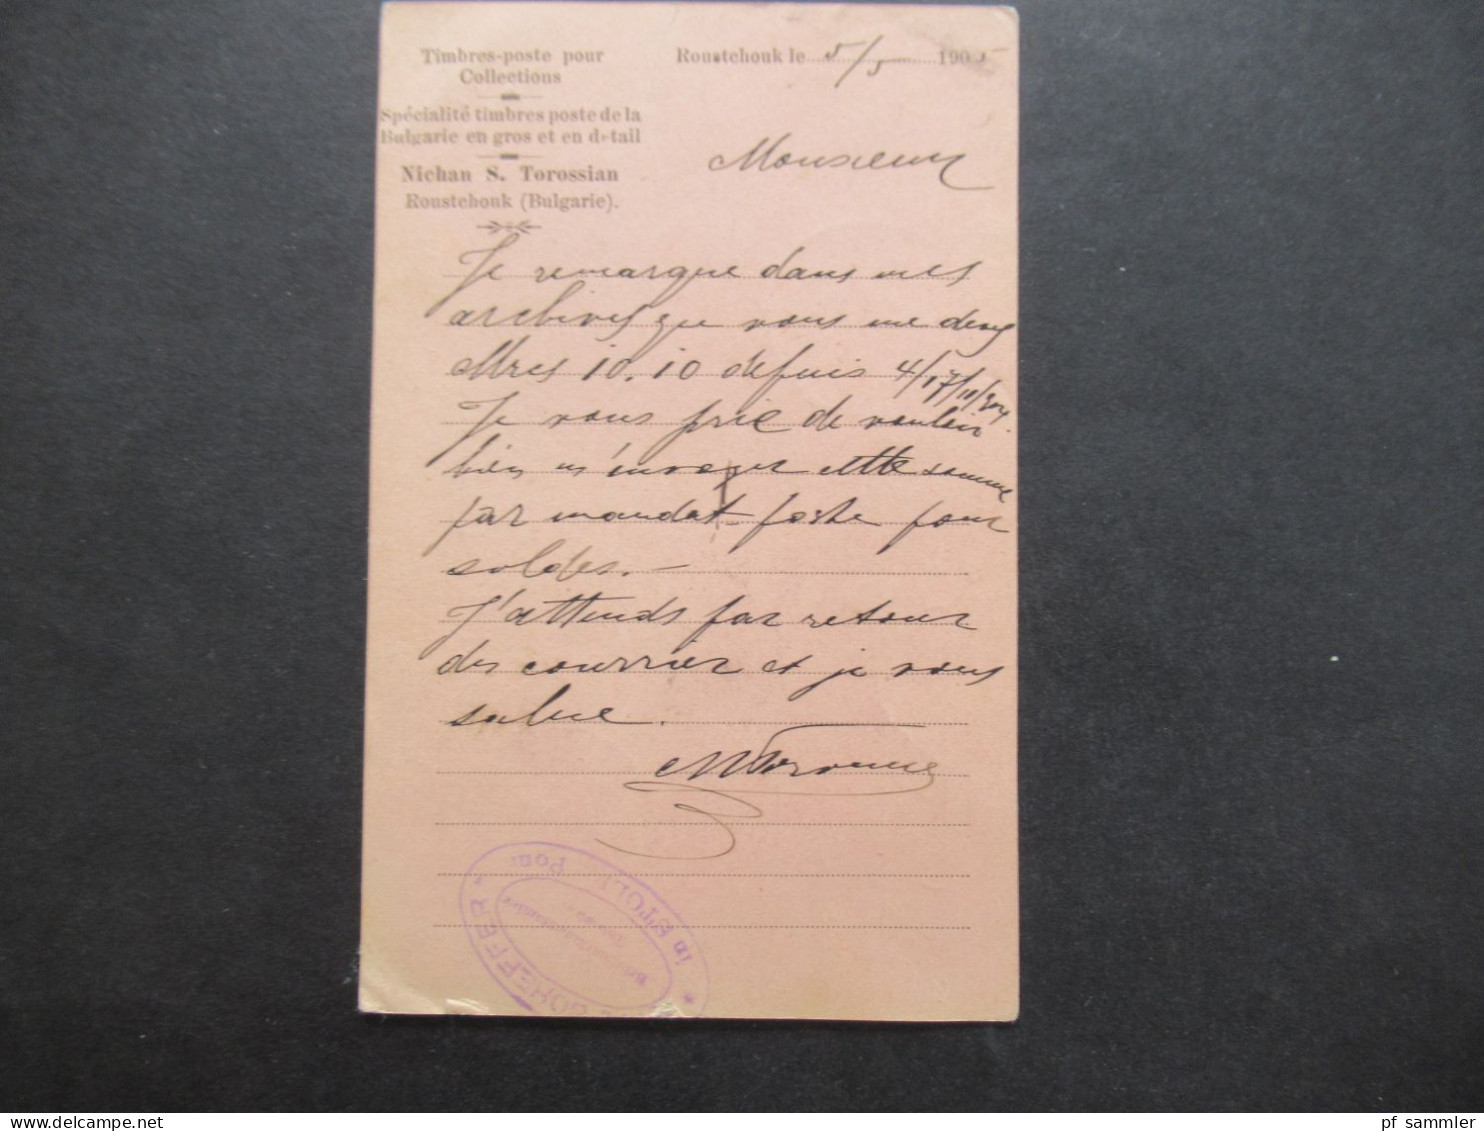 Timbres-poste pour
Collections
Spécialité timbres poste de la
Bulgarie en gros et en detail
Nichan S. Torossian
Roustchouk (Bulgarie).
Roustchouk le 5/5 1905
Monsieur
Je remarque dans mes
archives que vous me devez
Mrcs 10.10 depuis 4/17/10/904.
Je vous prie de vouloir
bien m'envoyer cette somme
par mandat poste pour
soldes.-
J'attends par retour
des courrier et je vous
salue.
in STOLP pour
SCHEFFER
pf sammler